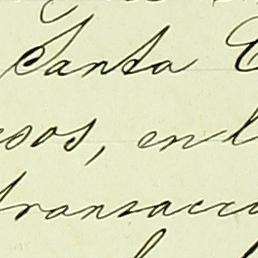 Santa C
esos, en l
transacci